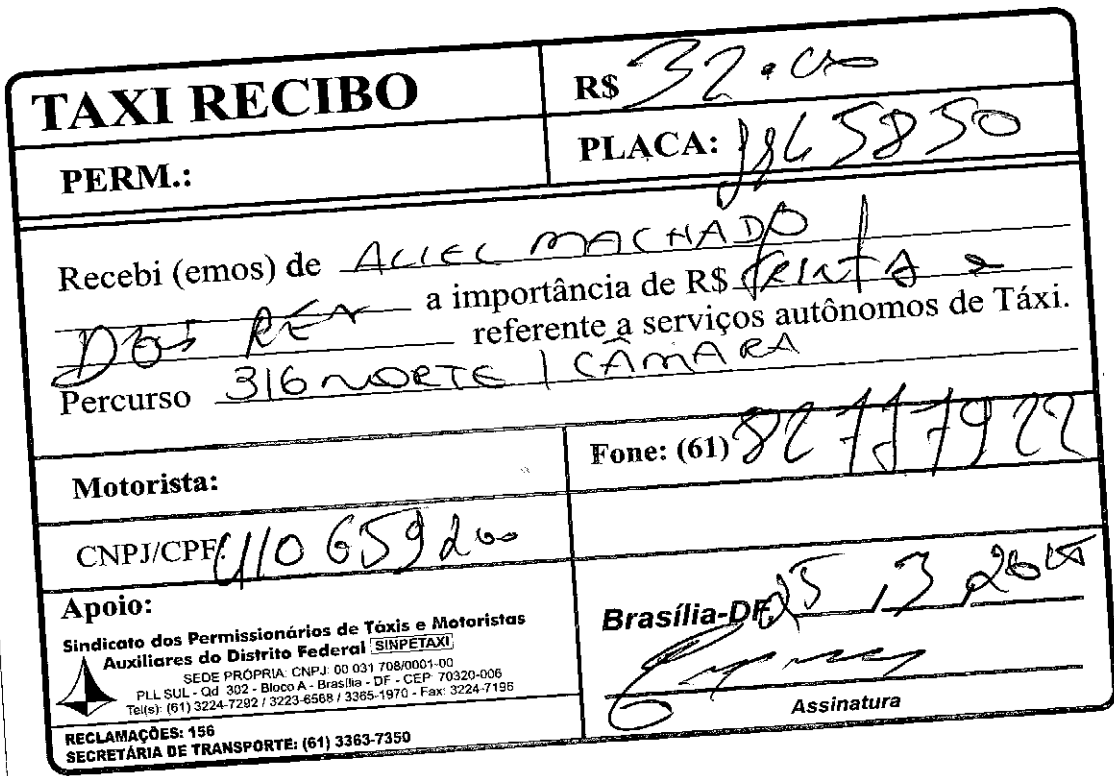 TAXI RECIBO
R$ 32.00
PERM.:
PLACA: JJG 5850
Recebi (emos) de ALIEL MACHADO
a importância de R$ TRINTA e
DOIS REAIS referente a serviços autônomos de Táxi.
Percurso 316 NORTE / CÂMARA
Motorista:
Fone: (61) 82777922
CNPJ/CPF:
Apoio:
Sindicato dos Permissionários de Táxis e Motoristas
Auxiliares do Distrito Federal SINPETAXI
SEDE PRÓPRIA: CNPJ: 00 031 708/0001-00
PLL SUL - Qd 302 - Bloco A - Brasília - DF - CEP: 70320-006
Tel(s): (61) 3224-7292 / 3223-6568 / 3365-1970 - Fax: 3224-7195
RECLAMAÇÕES: 156
SECRETÁRIA DE TRANSPORTE: (61) 3363-7350
Brasília-DF, 25, 3, 2015
Assinatura